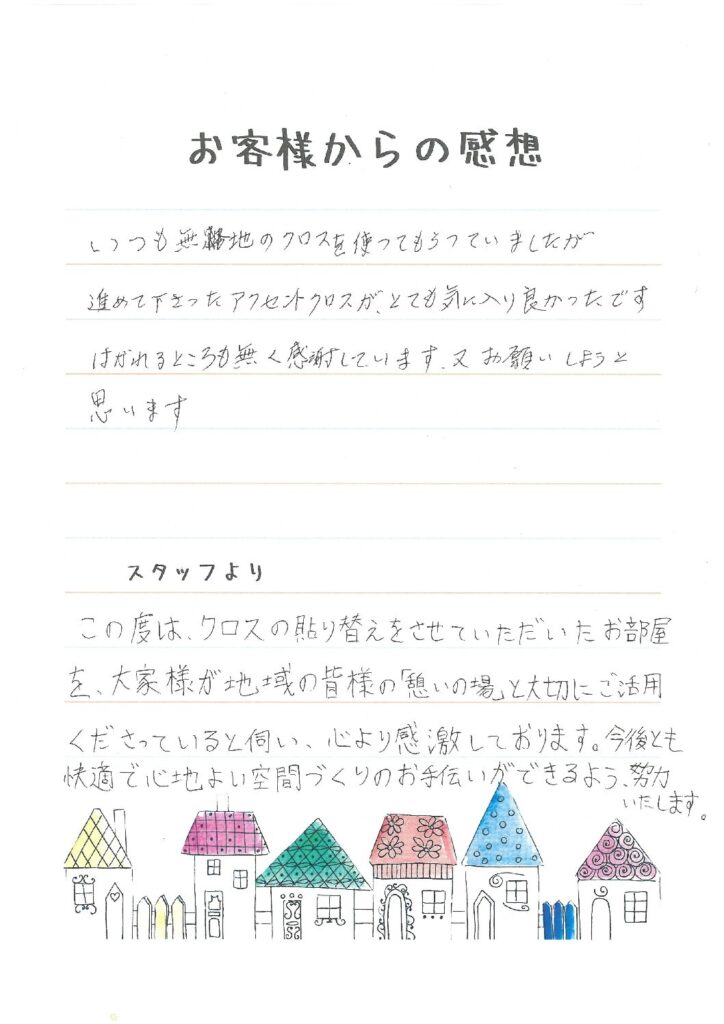 お客様からの感想
いつも無地のクロスを使ってもらっていましたが
進めて下さったアクセントクロスが、とても気に入り良かったです
はがれるところも無く感謝しています、又お願いしようと
思います
スタッフより
この度は、クロスの貼り替えをさせていただいたお部屋
を、大家様が地域の皆様の「憩いの場」と大切にご活用
くださっていると伺い、心より感激しております。今後とも
快適で心地よい空間づくりのお手伝いができるよう、努力
いたします。